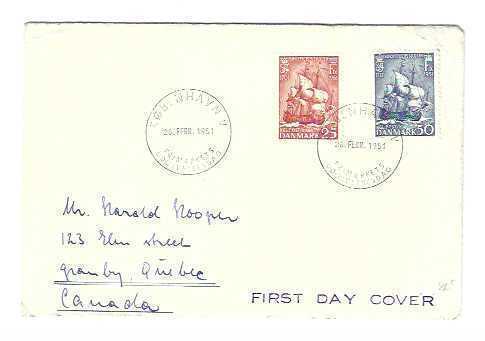 KØBENHAVN V
26. FEBR. 1951
FRIMÆRKETS
UDGIVELSESDAG
25
DANMARK
DANMARK 50
KØBENHAVN V
26. FEBR. 1951
FRIMÆRKETS
UDGIVELSESDAG
Mr. Harold Hooper
123 Elm street
Granby, Québec
Canada
FIRST DAY COVER